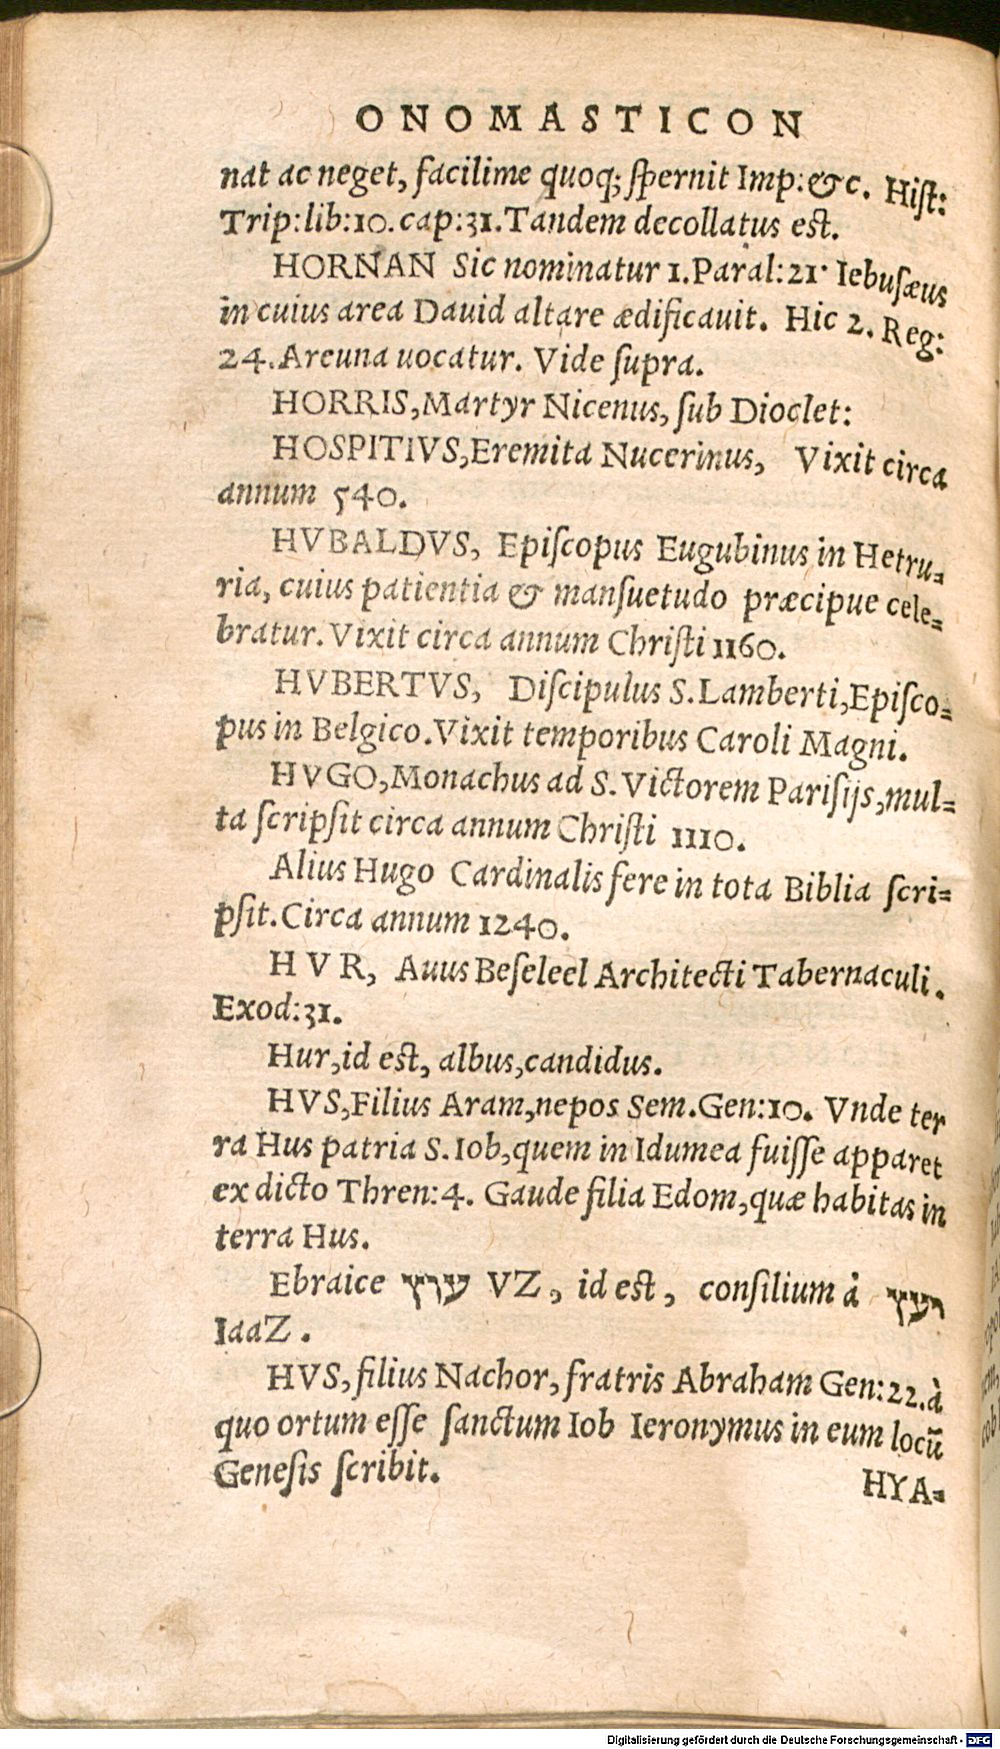 ONOMASTICON
nat ac neget, facilime quoq; spernit Imp: &c. Hist:
Trip: lib: 10. cap: 31. Tandem decollatus est.
HORNAN Sic nominatur 1. Paral: 21· Iebusæus
in cuius area Dauid altare ædificauit. Hic 2. Reg:
24. Areuna uocatur. Vide supra.
HORRIS, Martyr Nicenus, sub Dioclet:
HOSPITIVS, Eremita Nucerinus, Vixit circa
annum 540.
HVBALDVS, Episcopus Eugubinus in Hetru=
ria, cuius patientia & mansuetudo præcipue cele=
bratur. Vixit circa annum Christi 1160.
HVBERTVS, Discipulus S. Lamberti, Episco=
pus in Belgico. Vixit temporibus Caroli Magni.
HVGO, Monachus ad S. Victorem Parisijs, mul=
ta scripsit circa annum Christi 1110.
Alius Hugo Cardinalis fere in tota Biblia scri=
psit. Circa annum 1240.
HVR, Auus Beseleel Architecti Tabernaculi.
Exod: 31.
Hur, id est, albus, candidus.
HVS, Filius Aram, nepos Sem. Gen: 10. Vnde ter
ra Hus patria S. Iob, quem in Idumea fuisse apparet
ex dicto Thren: 4. Gaude filia Edom, quæ habitas in
terra Hus.
Ebraice עוץ VZ, id est, consilium à יעץ
IaaZ.
HVS, filius Nachor, fratris Abraham Gen: 22. à
quo ortum esse sanctum Iob Ieronymus in eum locū
Genesis scribit.
HYA=
Digitalisierung gefördert durch die Deutsche Forschungsgemeinschaft - DFG